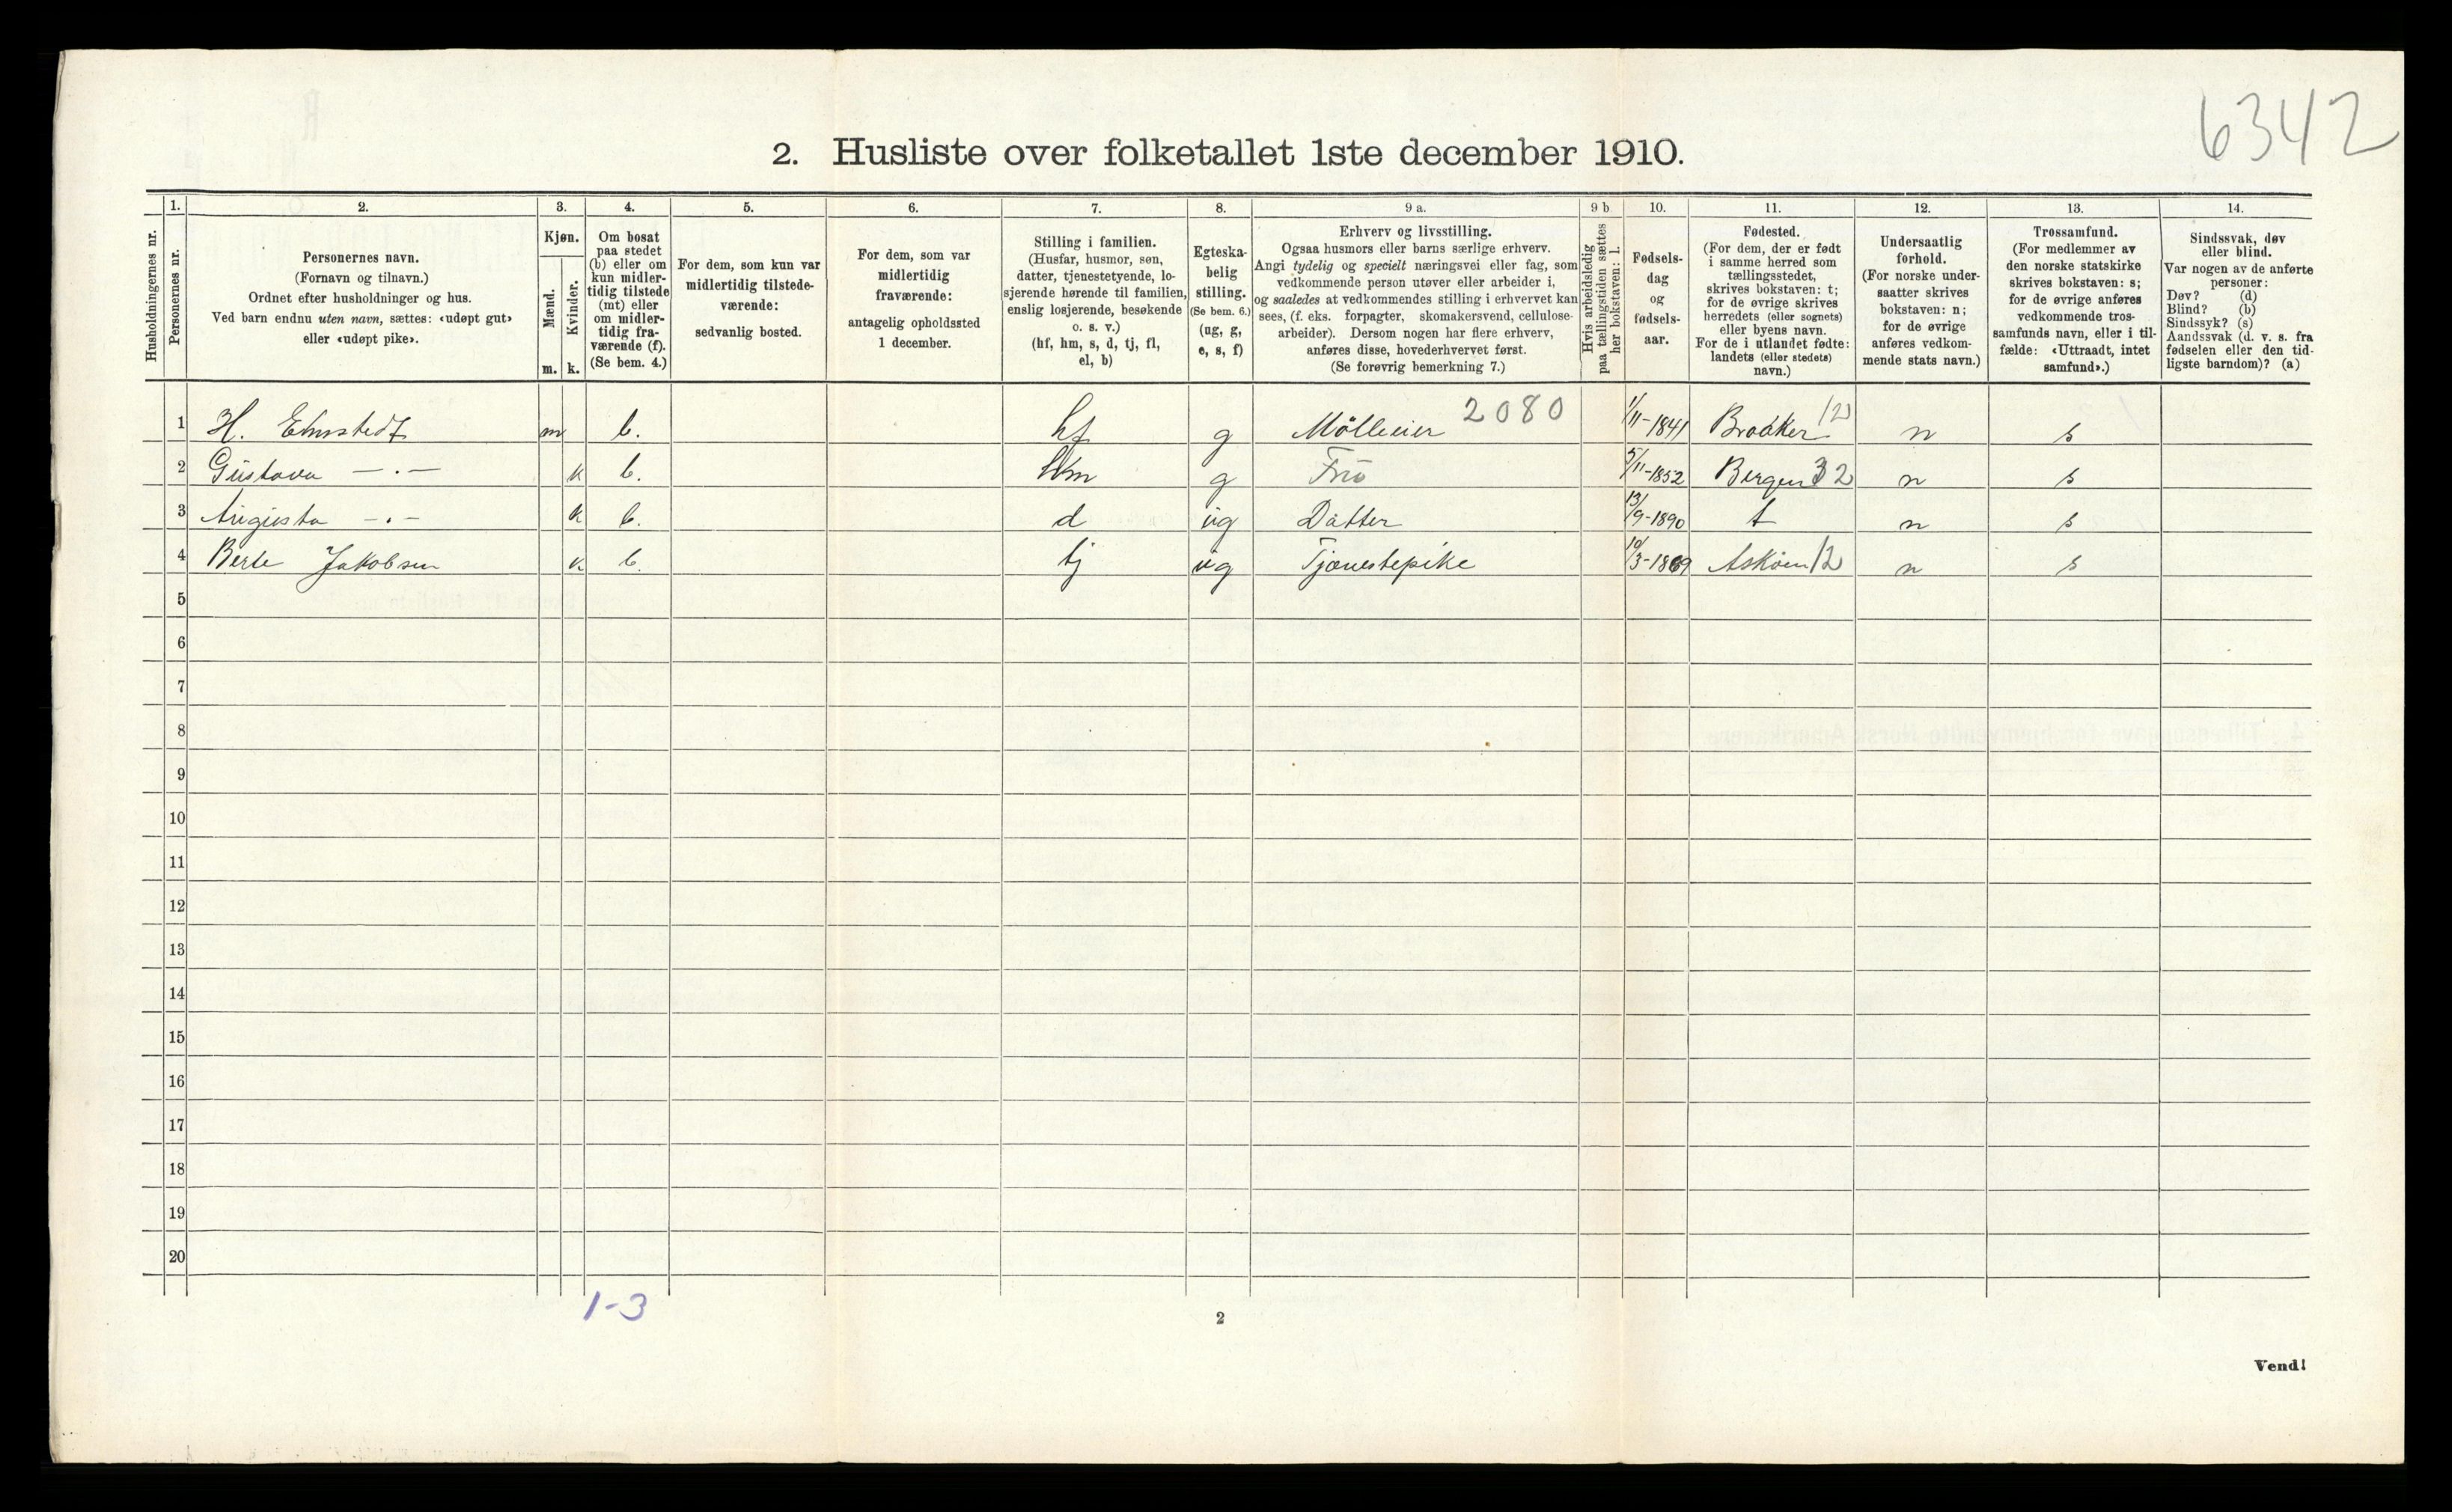 6342
2. Husliste over folketallet 1ste december 1910.
Husholdningernes nr.
1.
Personernes nr.
2.
Personernes navn.
(Fornavn og tilnavn.)
Ordnet efter husholdninger og hus.
Ved barn endnu uten navn, sættes: «udøpt gut»
eller «udøpt pike».
3.
Kjøn.
Mænd.
m.
Kvinder.
k.
4.
Om bosat
paa stedet
(b) eller om
kun midler-
tidig tilstede
(mt) eller
om midler-
tidig fra-
værende (f).
(Se bem. 4.)
5.
For dem, som kun var
midlertidig tilstede-
værende:
sedvanlig bosted.
6.
For dem, som var
midlertidig
fraværende:
antagelig opholdssted
1 december.
7.
Stilling i familien.
(Husfar, husmor, søn,
datter, tjenestetyende, lo-
sjerende hørende til familien,
enslig losjerende, besøkende
o. s. v.)
(hf, hm, s, d, tj, fl,
el, b)
8.
Egteska-
belig
stilling.
(Se bem. 6.)
(ug, g,
e, s, f)
9 a.
Erhverv og livsstilling.
Ogsaa husmors eller barns særlige erhverv.
Angi tydelig og specielt næringsvei eller fag, som
vedkommende person utøver eller arbeider i,
og saaledes at vedkommendes stilling i erhvervet kan
sees, (f. eks. forpagter, skomakersvend, cellulose-
arbeider). Dersom nogen har flere erhverv,
anføres disse, hovederhvervet først.
(Se forøvrig bemerkning 7.)
9 b
Hvis arbeidsledig
paa tællingstiden sættes
her bokstaven: l.
10.
Fødsels-
dag
og
fødsels-
aar.
11.
Fødested.
(For dem, der er født
i samme herred som
tællingsstedet,
skrives bokstaven: t;
for de øvrige skrives
herredets (eller sognets)
eller byens navn.
For de i utlandet fødte:
landets (eller stedets)
navn.)
12.
Undersaatlig
forhold.
(For norske under-
saatter skrives
bokstaven: n;
for de øvrige
anføres vedkom-
mende stats navn.)
13.
Trossamfund.
(For medlemmer av
den norske statskirke
skrives bokstaven: s;
for de øvrige anføres
vedkommende tros-
samfunds navn, eller i til-
fælde: «Uttraadt, intet
samfund».)
14.
Sindssvak, døv
eller blind.
Var nogen av de anførte
personer:
Døv? (d)
Blind? (b)
Sindssyk? (s)
Aandssvak (d. v. s. fra
fødselen eller den tid-
ligste barndom)? (a)
1 H. m b. hf g Mölleeier 2080 1/11-1841 12 n s
2 Gustava — . — k b. Hm g Frü 5/11-1852 Bergen 32 n s
3 Augusta — . — k b. d ug Datter 13/9-1890 t n s
4 Berte Jakobsen k b. tj ug Tjænestepike 10/3-1869 Askøen 12 n s
5
6
7
8
9
10
11
12
13
14
15
16
17
18
19
20
1-3
2
Vend!